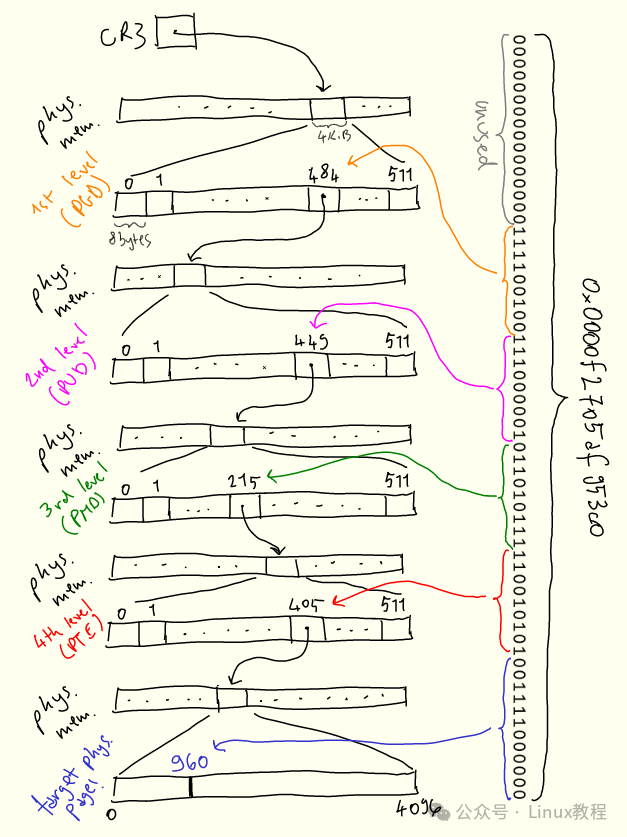 CR3
phys. mem.
4KiB
1st level (PGD)
0 1 484 511
8bytes
phys. mem.
2nd level (PUD)
0 1 449 511
phys. mem.
3rd level (PMD)
0 1 215 511
phys. mem.
4th level (PTE)
0 1 405 511
phys. mem.
target phys. page!
960
0 4096
unused
0000000000000000111100100111000001011010111110010101001111000000
0x0000f2705af953c0
公众号 · Linux教程